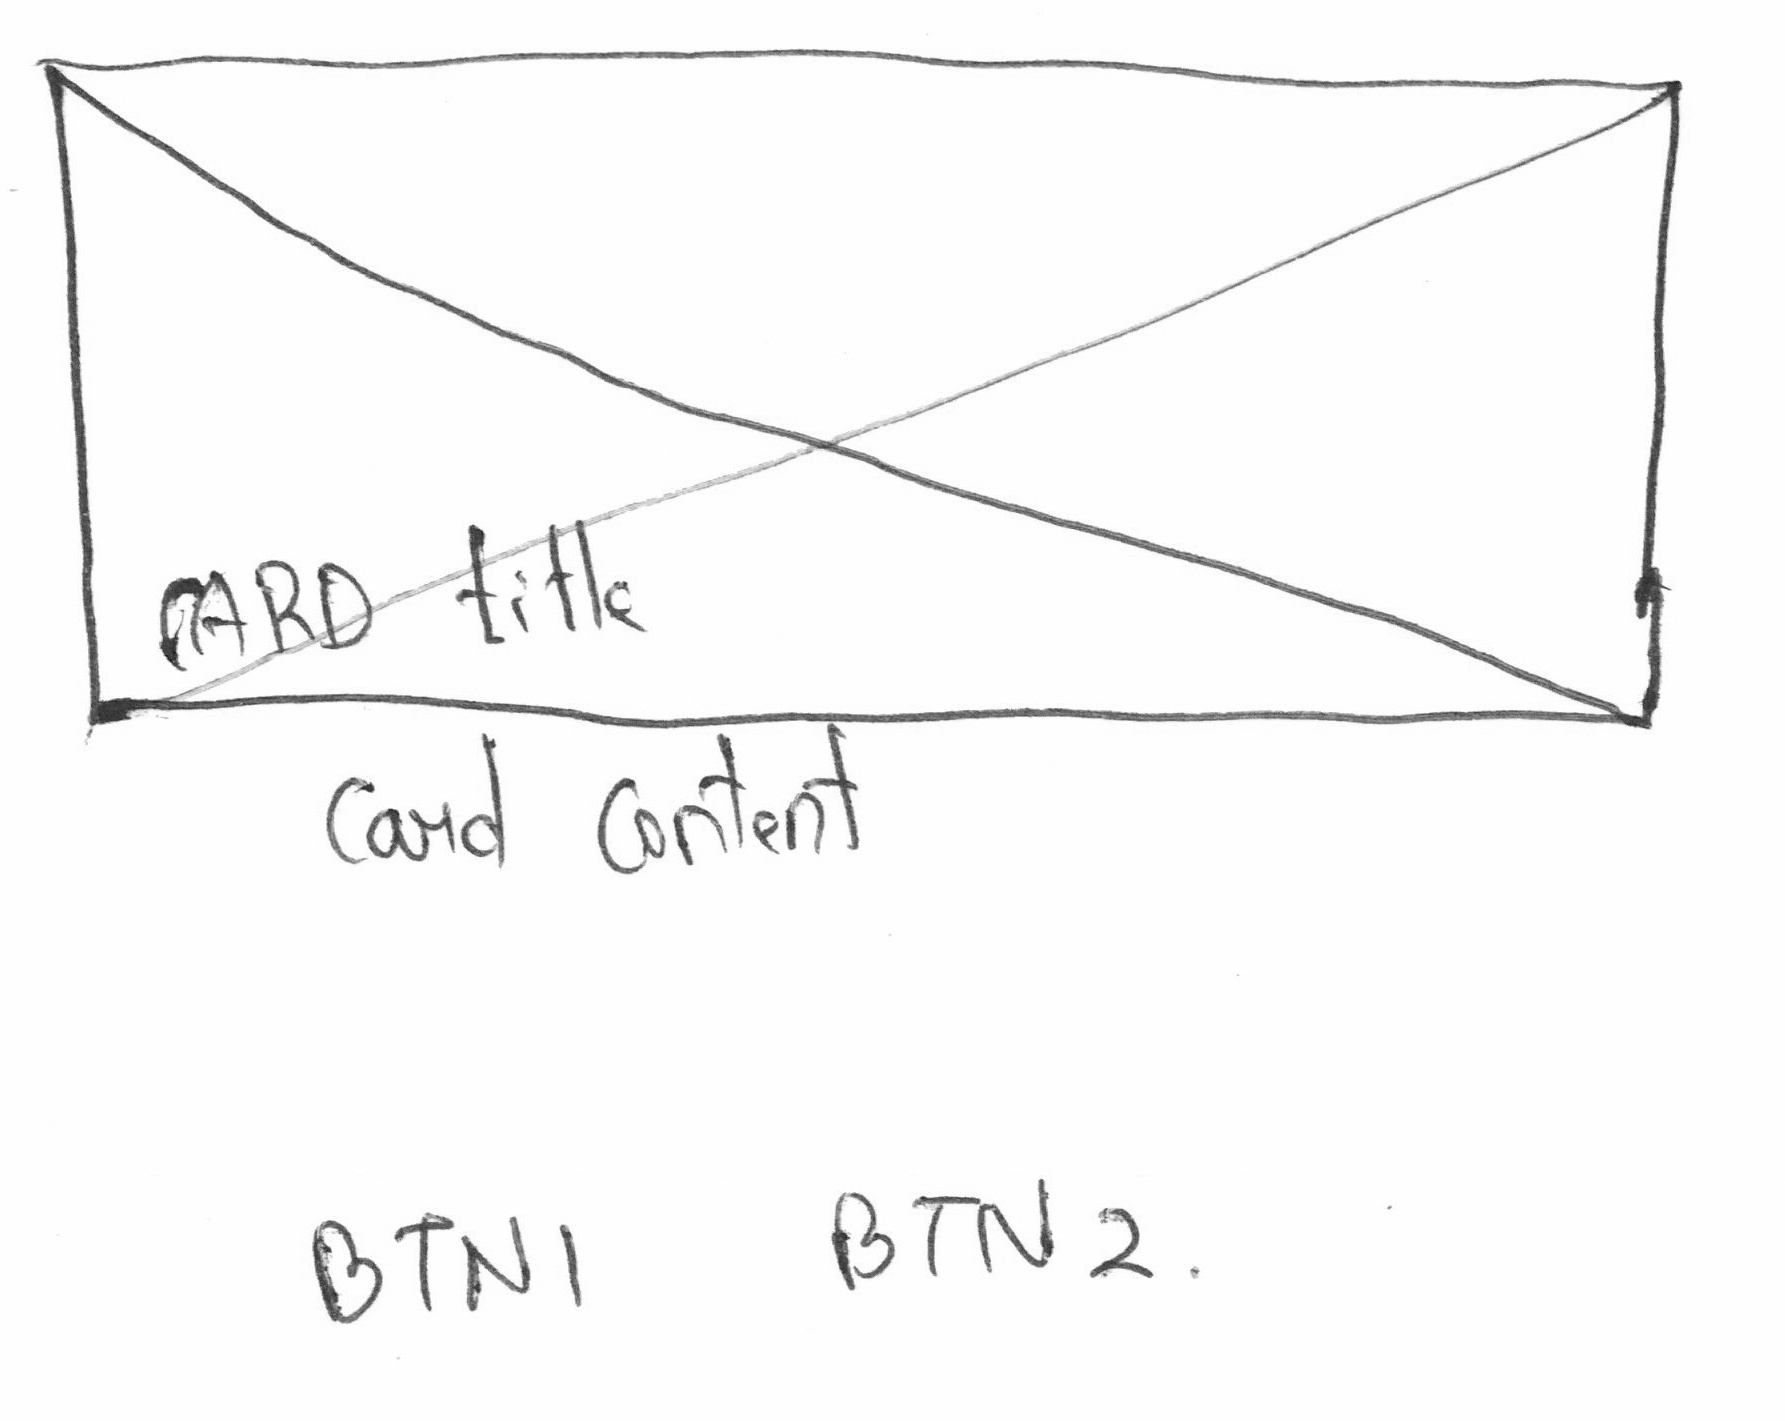 CARD title
Card Content
BTN1 BTN2.